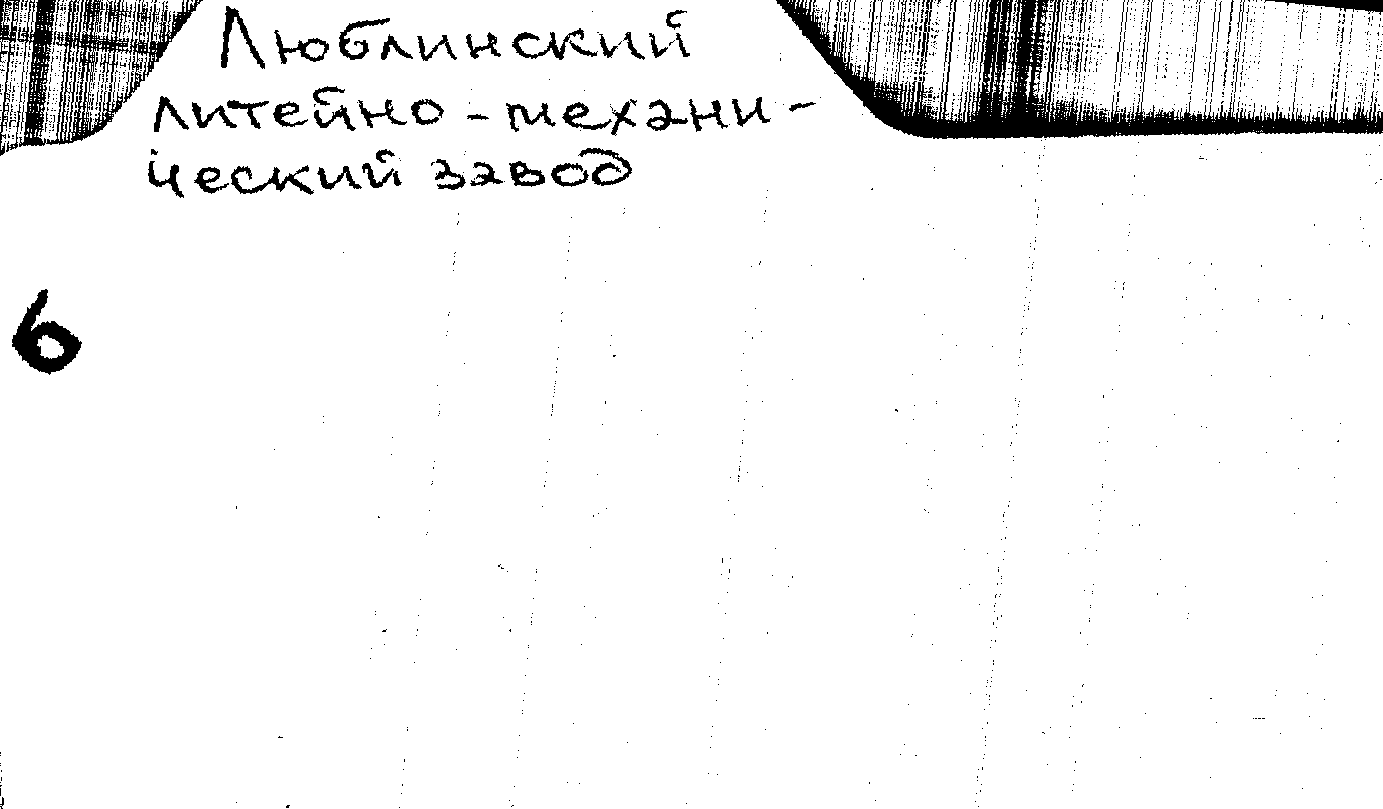 Люблинский
литейно-механи-
ческий завод
6